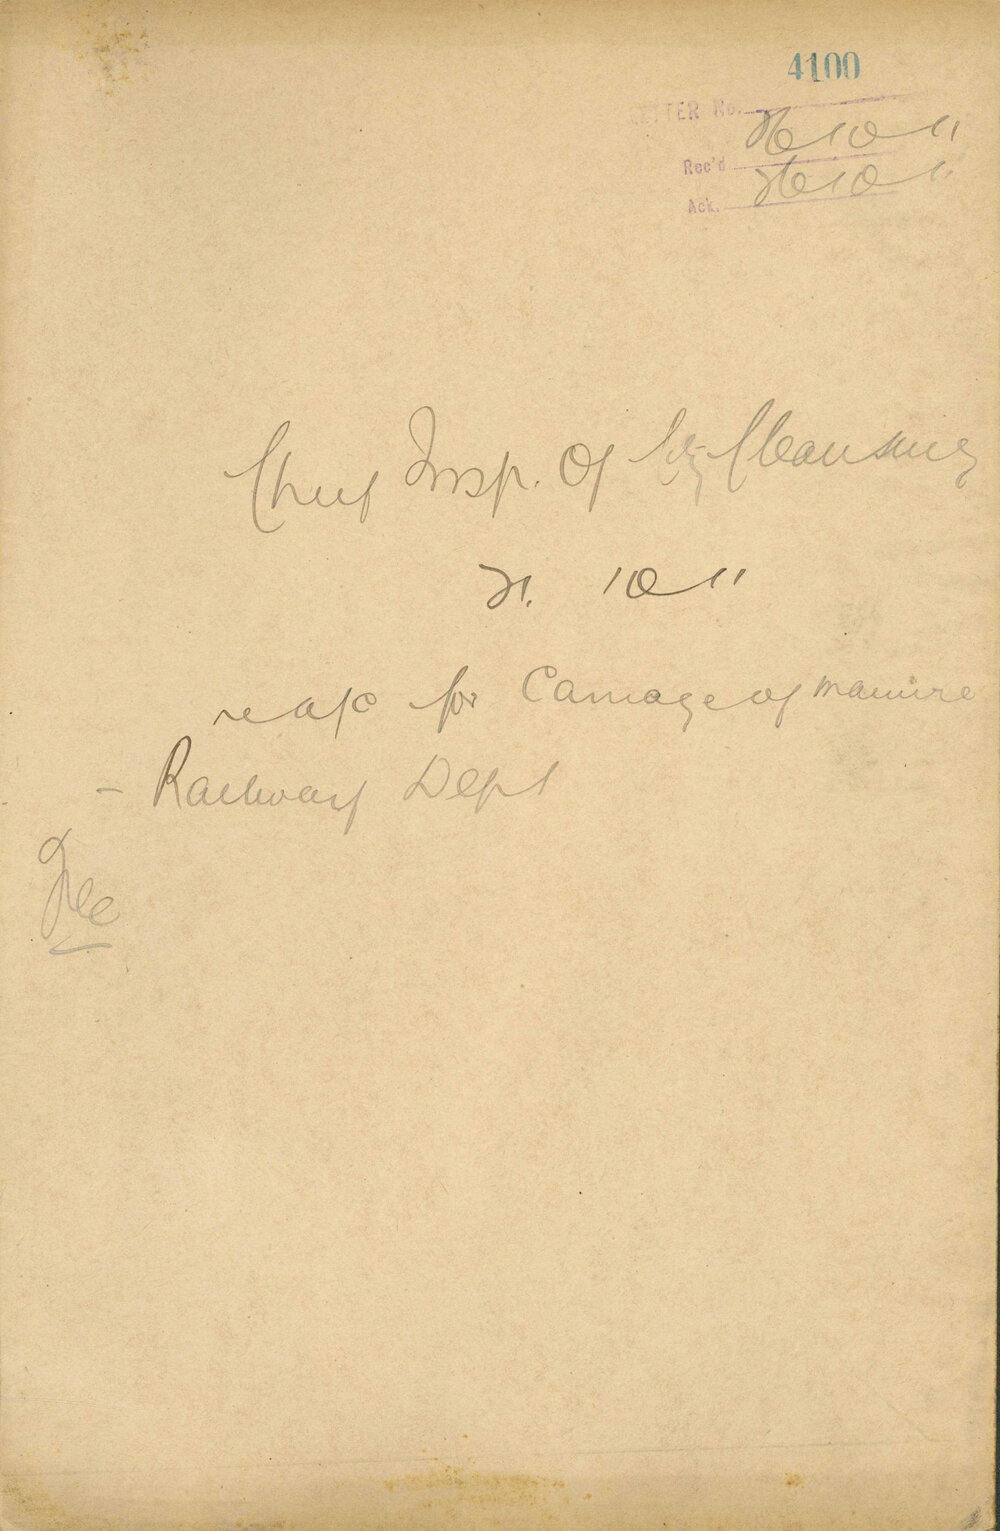 4100
LETTER No.
Rec'd 26/10/11
Ack. 26/10/11
Chief Insp. Of City Cleansing
21. 10 11
re a/c for Carriage of manure
- Railway Dept
File